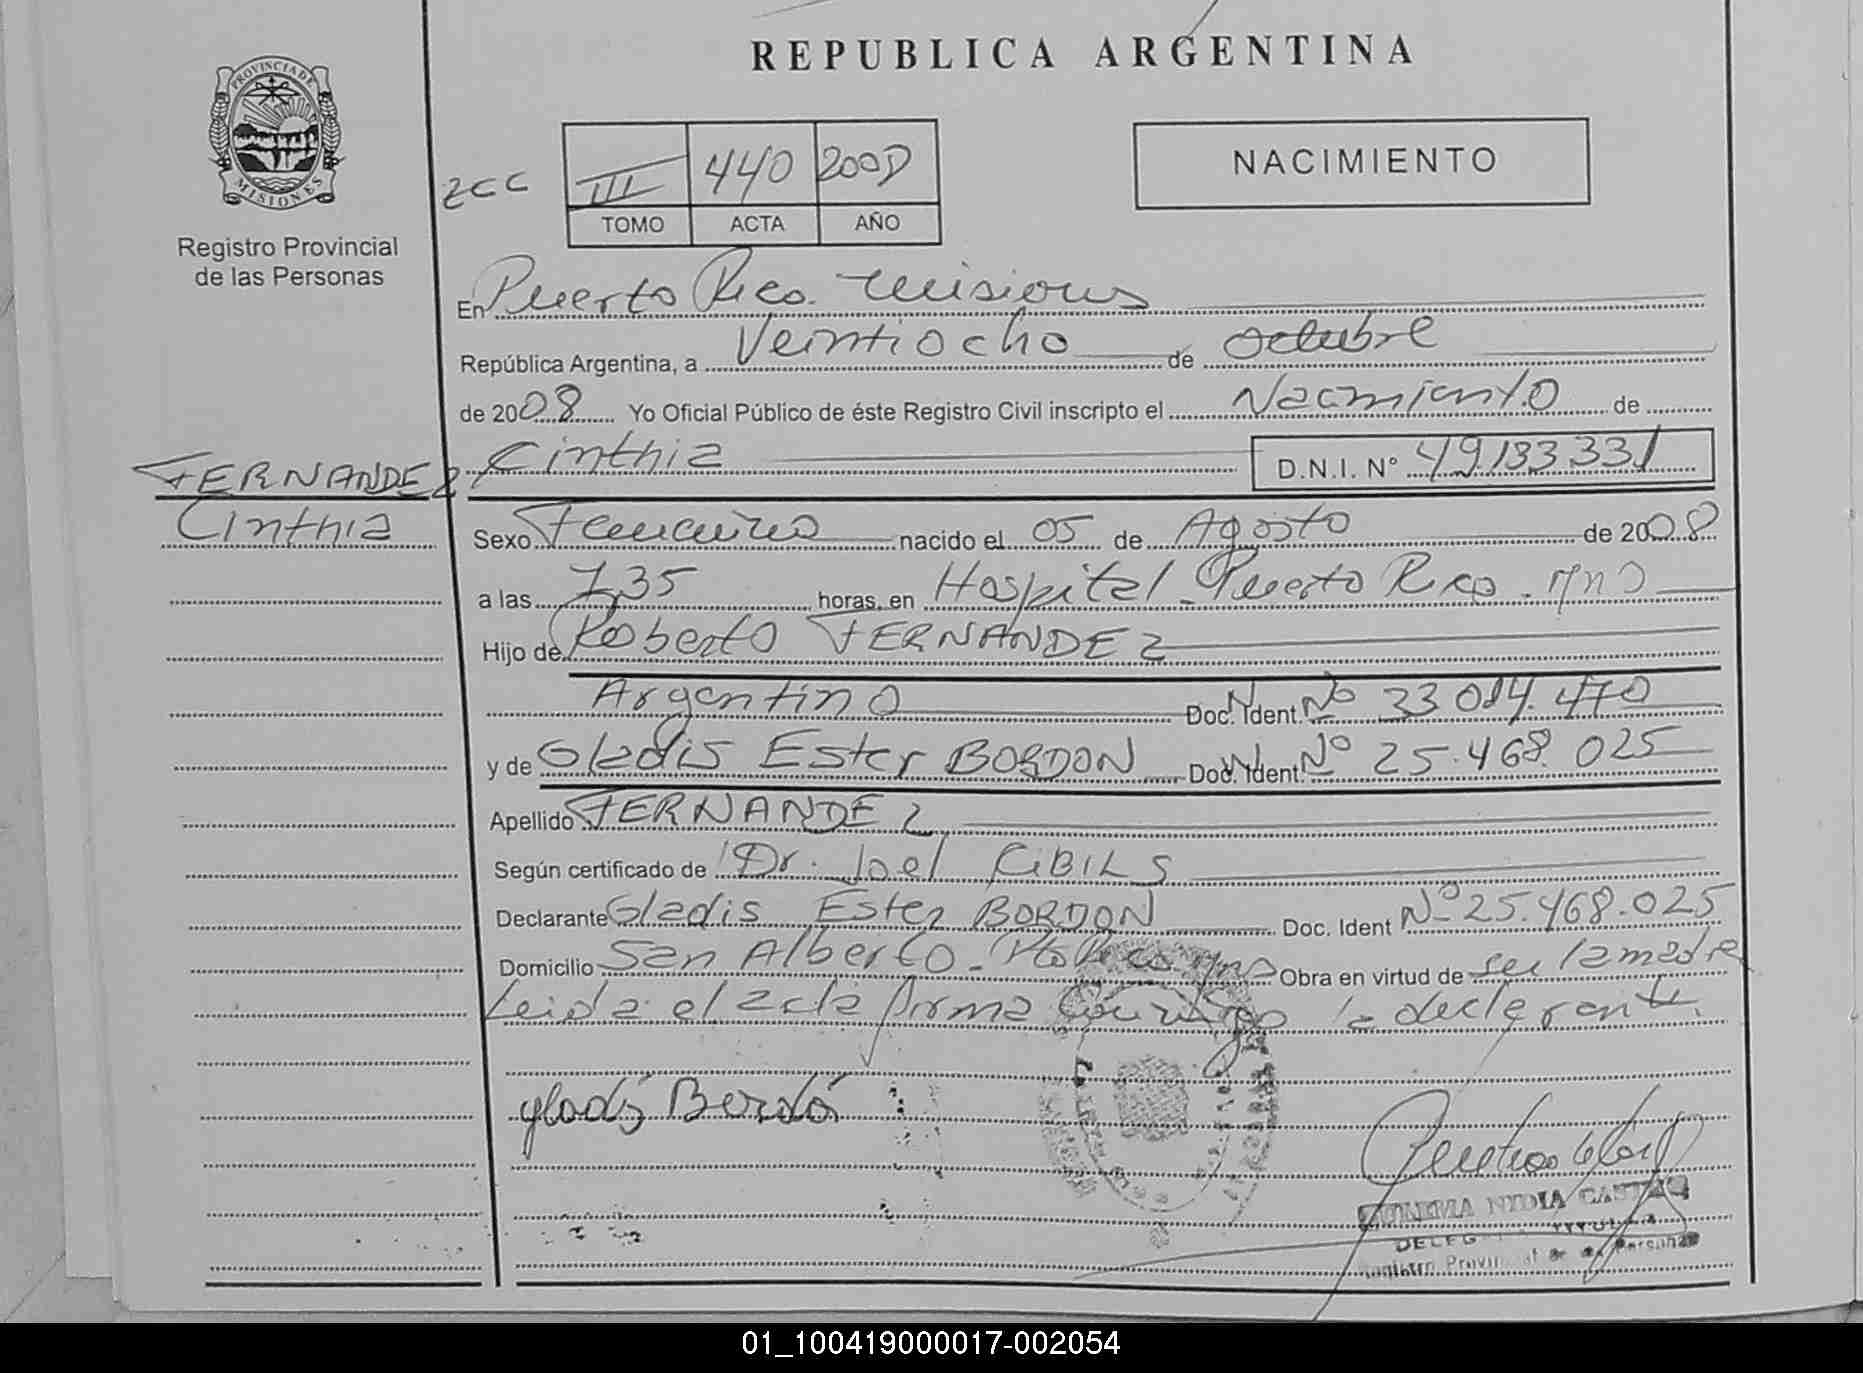 REPUBLICA ARGENTINA
PROVINCIA DE
MISIONES
Registro Provincial
de las Personas
III 440 2008
TOMO ACTA AÑO
NACIMIENTO
En Puerto Rico. Misiones
República Argentina, a Veintiocho de Octubre
de 2008 Yo Oficial Público de éste Registro Civil inscripto el Nacimiento de
Cinthia D.N.I. Nº 49.133 331
FERNANDEZ
Cinthia
Sexo Femenino nacido el 05 de Agosto de 2008
a las 7,35 horas, en Hospital - Puerto Rico . Mnes
Hijo de Roberto FERNANDEZ
Argentino Doc. Ident. Nº 33 014. 470
y de Gladis Ester BORDON Doc. Ident. Nº 25.468.025
Apellido FERNANDEZ
Según certificado de Dr. Joel CIBILS
Declarante Gladis Ester BORDON Doc. Ident Nº 25.468.025
Domicilio San Alberto - Pto Rico Mnes Obra en virtud de ser la madre
Leida el acta firma conmigo la declarante.
Gladis Bordón
ZULEMA NYDIA
Registro Provincial de las Personas
01_100419000017-002054